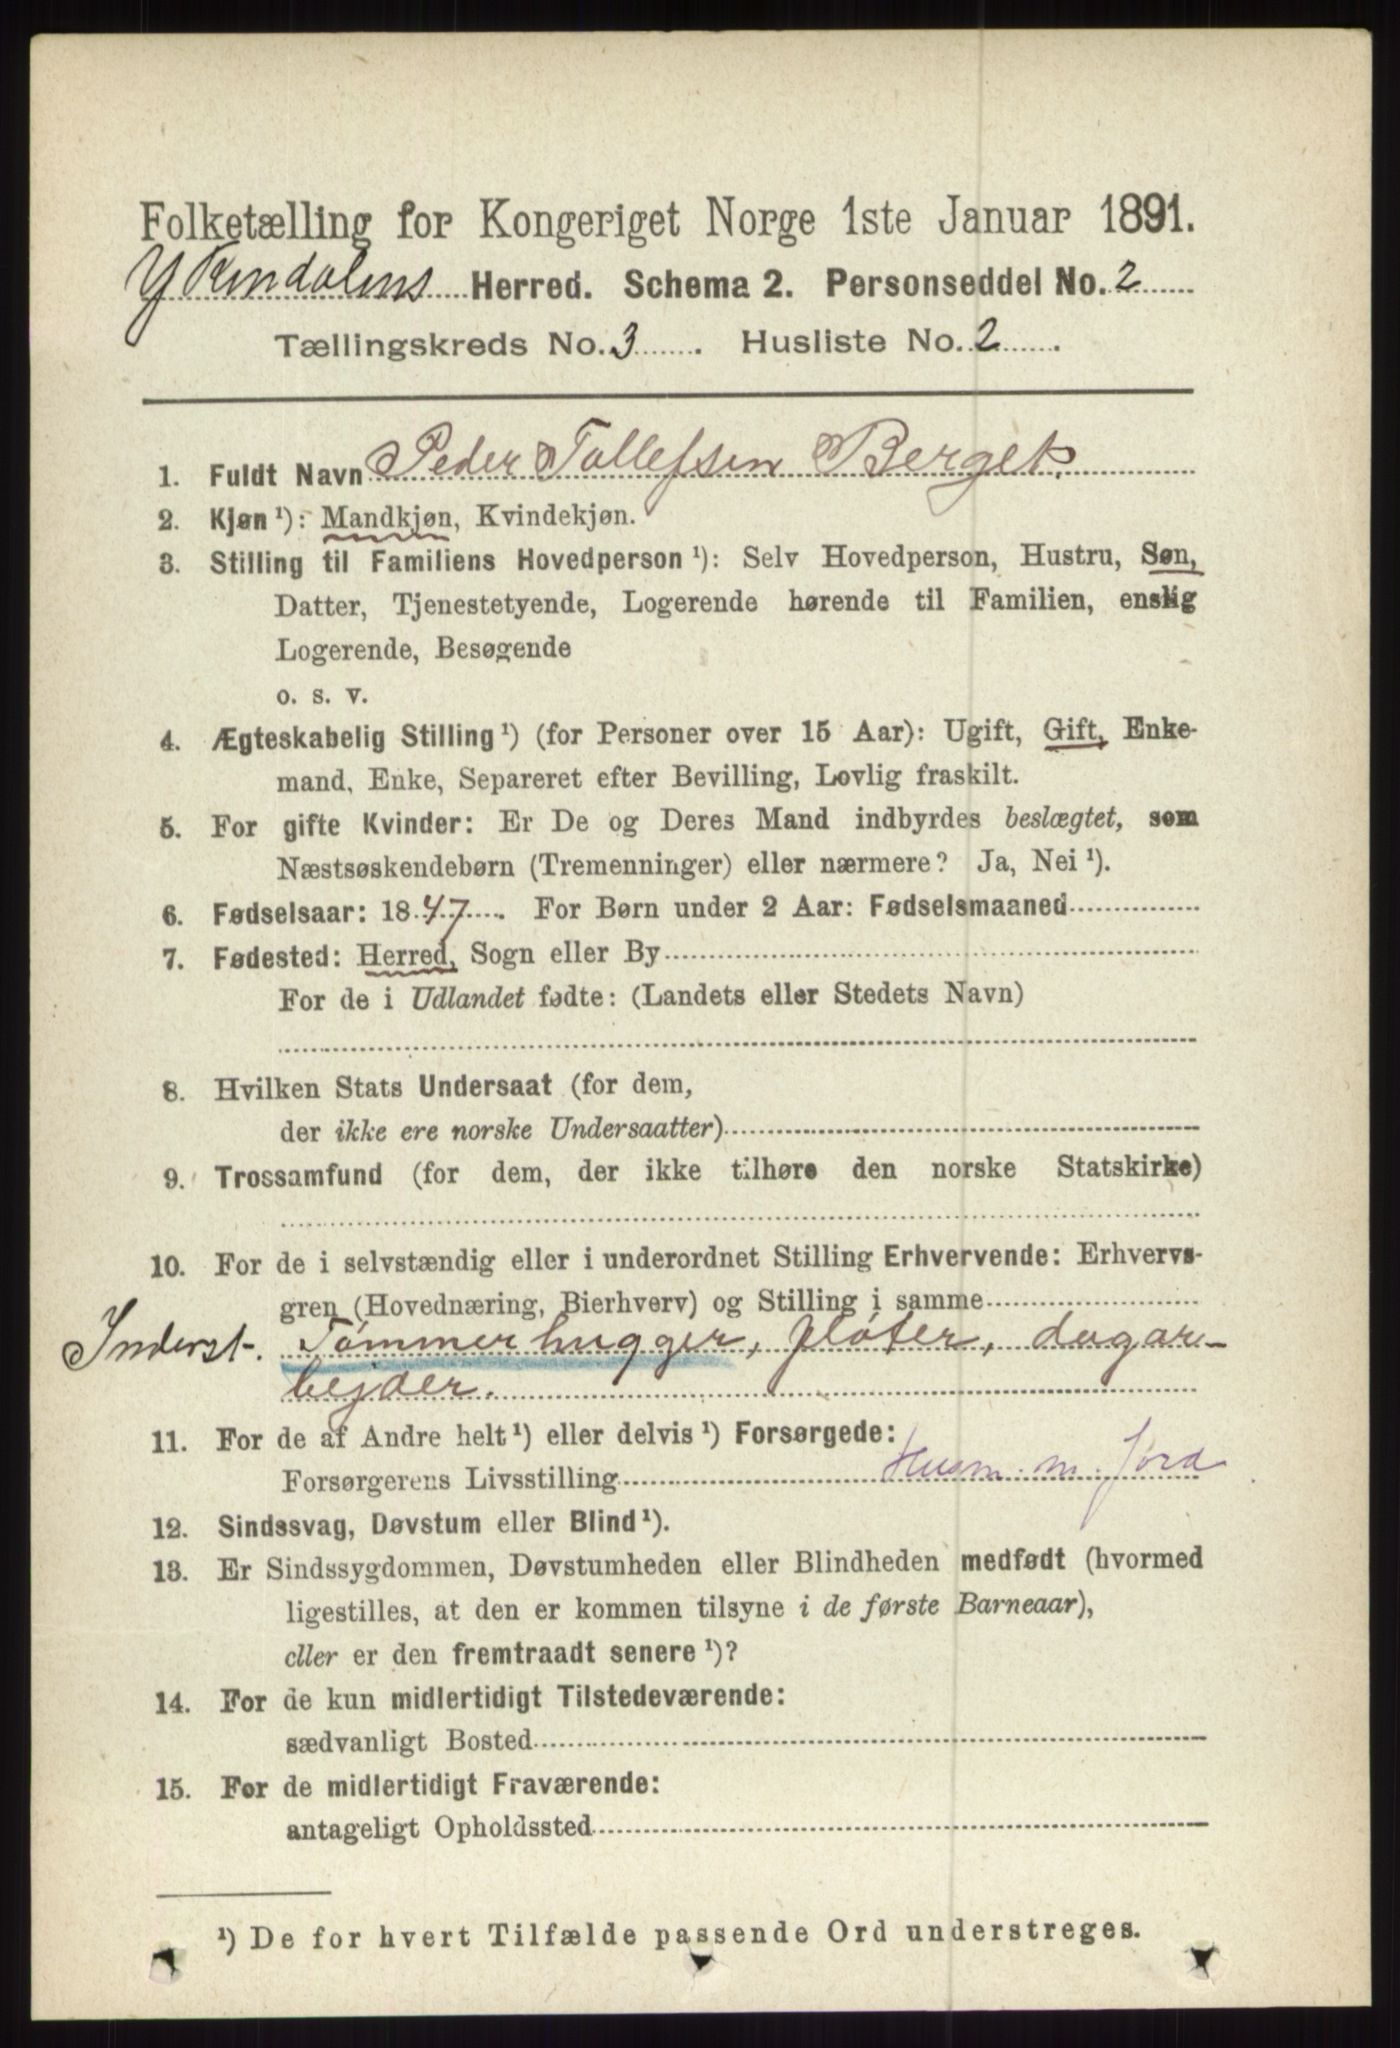 Folketælling for Kongeriget Norge 1ste Januar 1891.
Y Rendalens Herred. Schema 2. Personseddel No. 2
Tællingskreds No. 3. Husliste No. 2.
1. Fuldt Navn Peder Tollefsen Berget
2. Kjøn ¹): Mandkjøn, Kvindekjøn.
3. Stilling til Familiens Hovedperson ¹): Selv Hovedperson, Hustru, Søn,
Datter, Tjenestetyende, Logerende hørende til Familien, enslig
Logerende, Besøgende
o. s. v.
4. Ægteskabelig Stilling ¹) (for Personer over 15 Aar): Ugift, Gift, Enke-
mand, Enke, Separeret efter Bevilling, Lovlig fraskilt.
5. For gifte Kvinder: Er De og Deres Mand indbyrdes beslægtet, som
Næstsøskendebørn (Tremenninger) eller nærmere? Ja, Nei ¹).
6. Fødselsaar: 1847. For Børn under 2 Aar: Fødselsmaaned
7. Fødested: Herred, Sogn eller By
For de i Udlandet fødte: (Landets eller Stedets Navn)
8. Hvilken Stats Undersaat (for dem,
der ikke ere norske Undersaatter)
9. Trossamfund (for dem, der ikke tilhøre den norske Statskirke)
10. For de i selvstændig eller i underordnet Stilling Erhvervende: Erhvervs-
gren (Hovednæring, Bierhverv) og Stilling i samme
Inderst. Tømmerhugger, fløter, dagar-
bejder.
11. For de af Andre helt ¹) eller delvis ¹) Forsørgede:
Forsørgerens Livsstilling Husm. m. Jord
12. Sindssvag, Døvstum eller Blind ¹).
13. Er Sindssygdommen, Døvstumheden eller Blindheden medfødt (hvormed
ligestilles, at den er kommen tilsyne i de første Barneaar),
eller er den fremtraadt senere ¹)?
14. For de kun midlertidigt Tilstedeværende:
sædvanligt Bosted
15. For de midlertidigt Fraværende:
antageligt Opholdssted
¹) De for hvert Tilfælde passende Ord understreges.